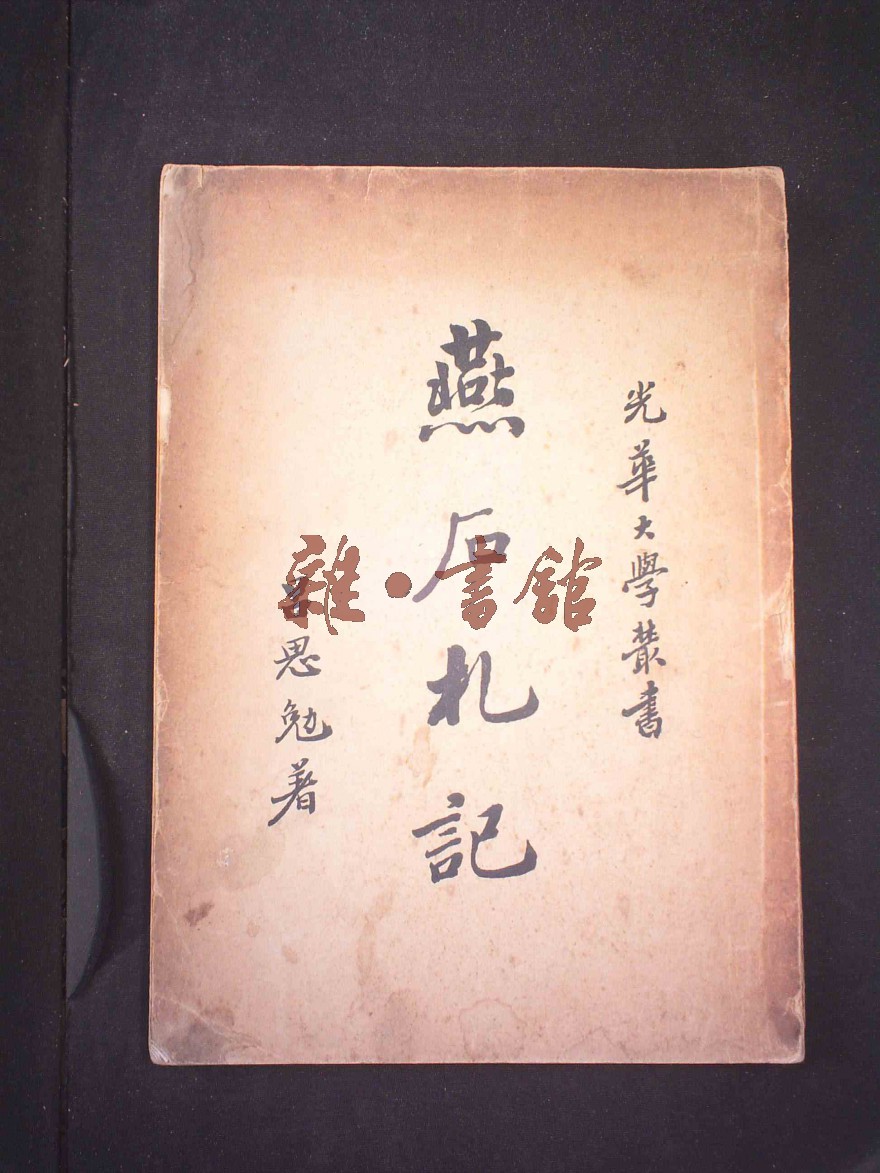 光華大學叢書
燕石札記
呂思勉著
雜·書館